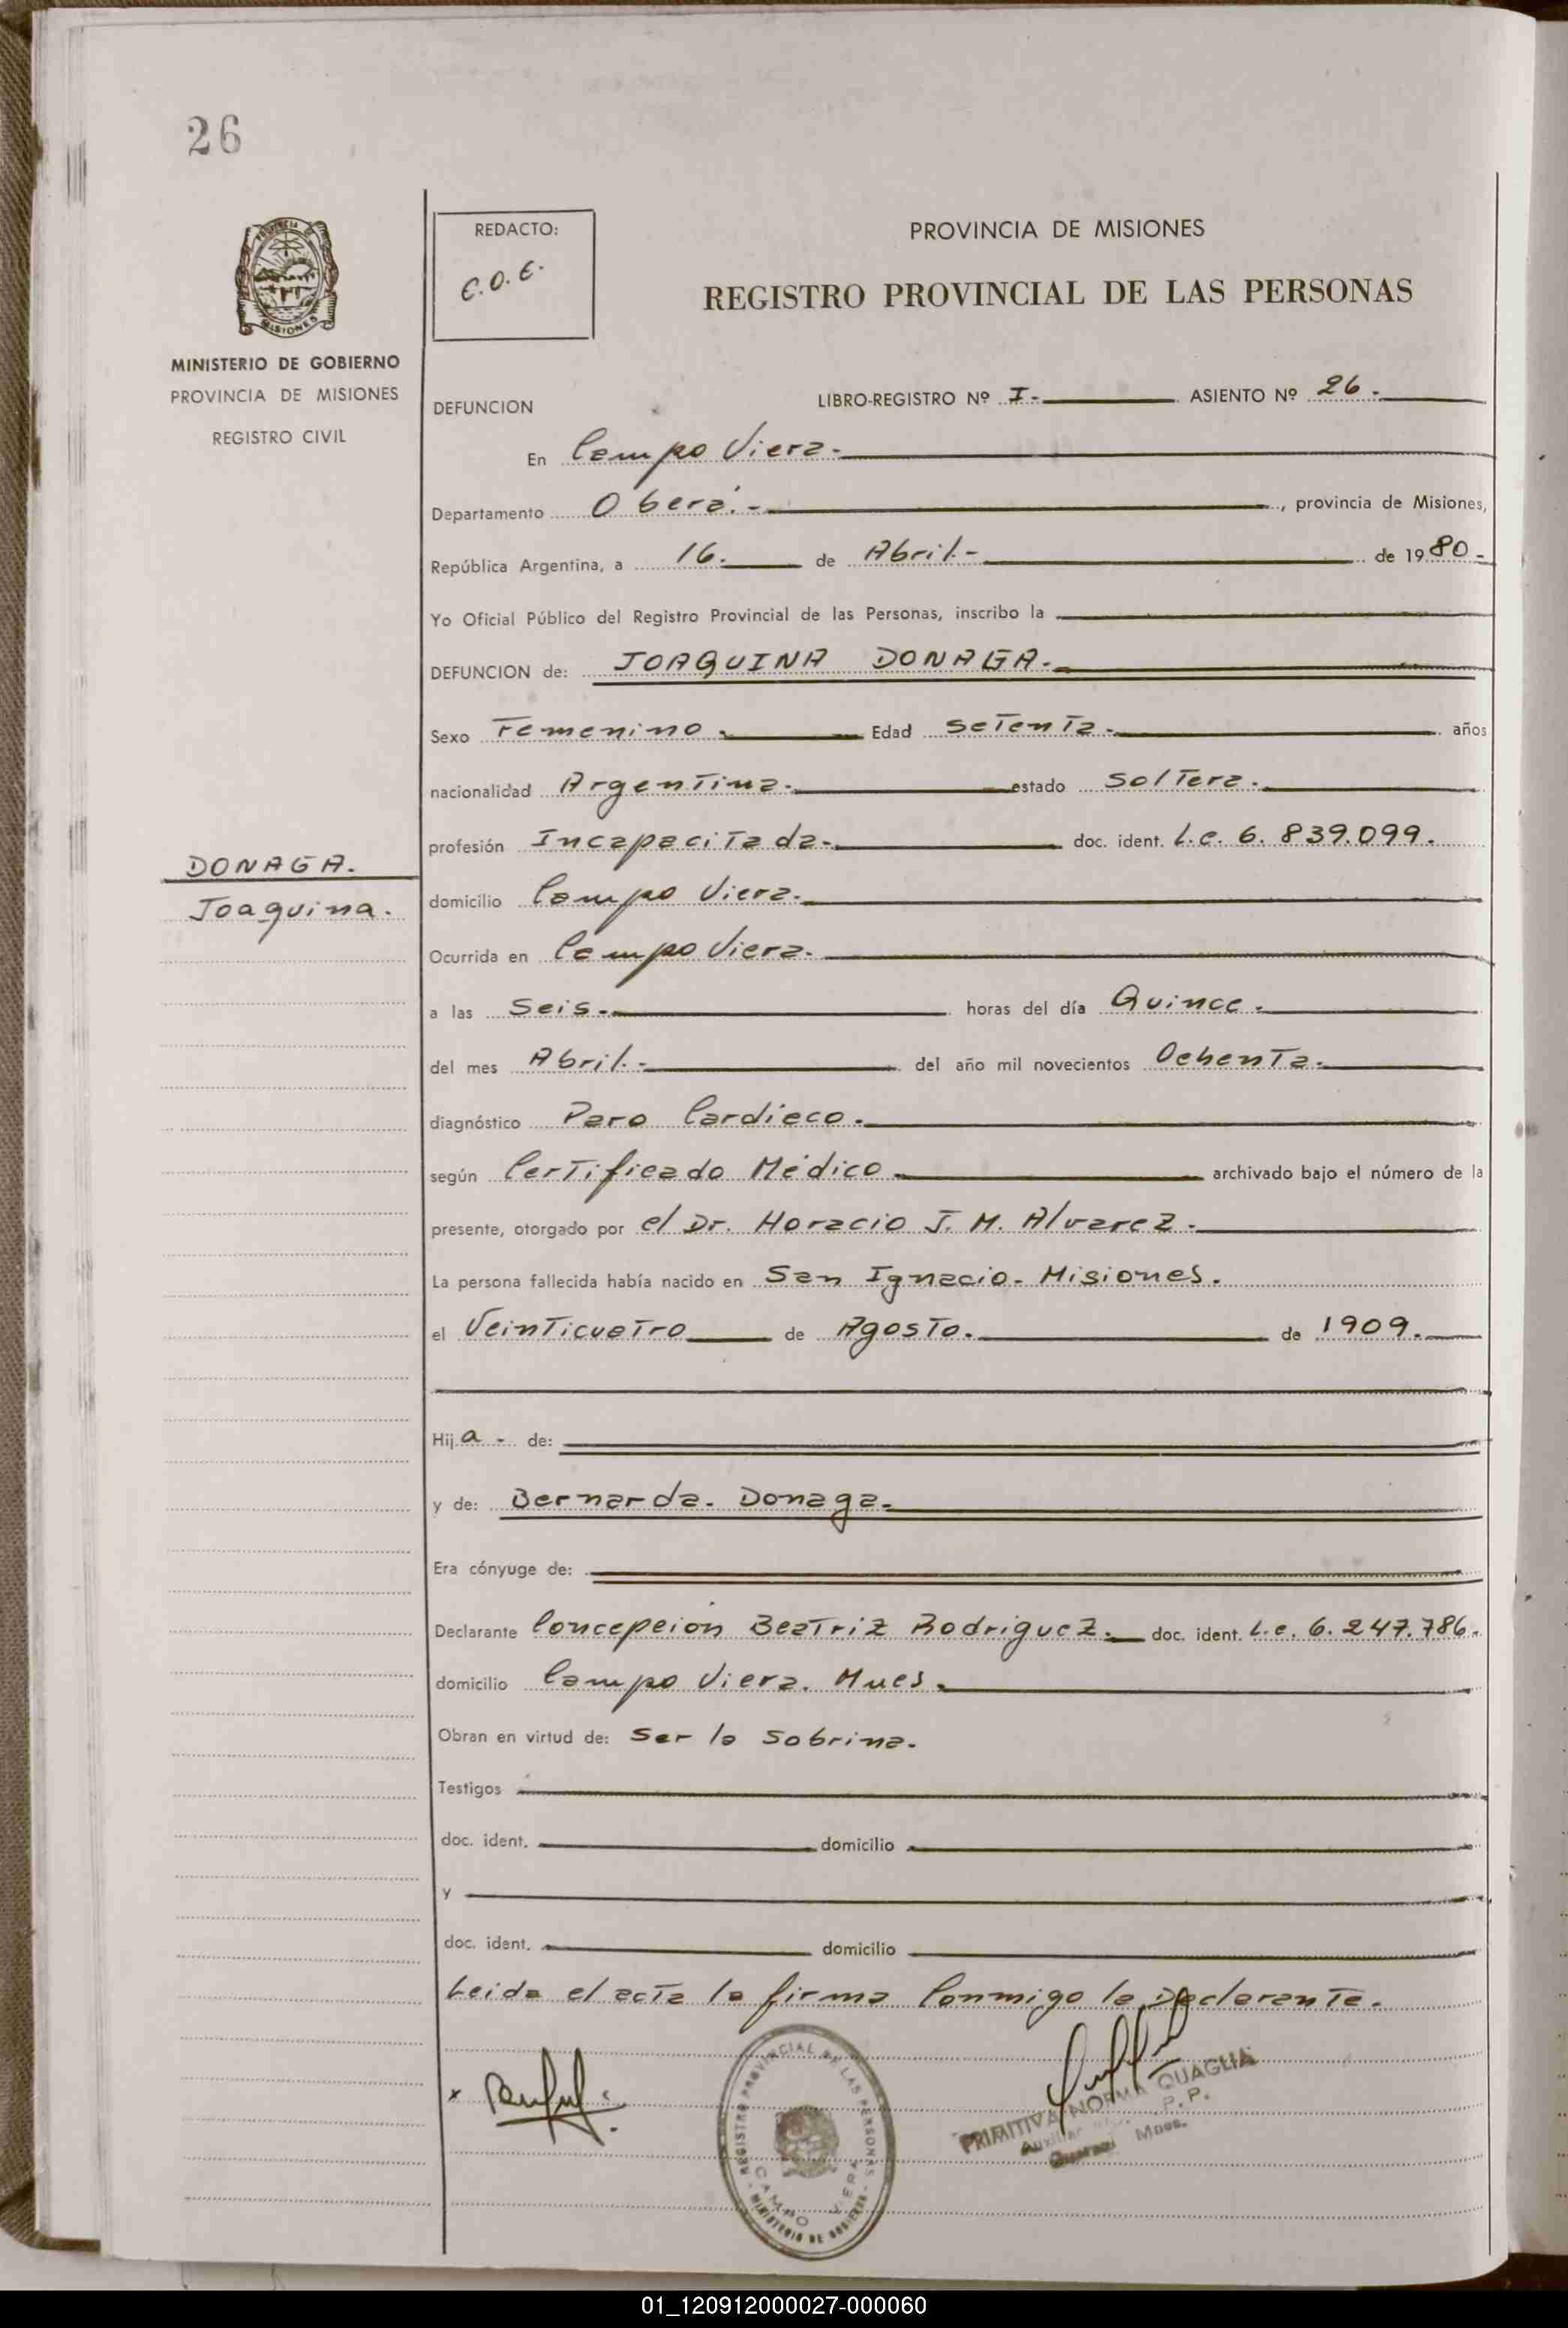 26
MINISTERIO DE GOBIERNO
PROVINCIA DE MISIONES
REGISTRO CIVIL
DONAGA.
Joaquina.
REDACTO:
C.O.E.
PROVINCIA DE MISIONES
REGISTRO PROVINCIAL DE LAS PERSONAS
DEFUNCION LIBRO-REGISTRO Nº I.- ASIENTO Nº 26.-
En Campo Viera.-
Departamento Oberá.- , provincia de Misiones,
República Argentina, a 16. de Abril.- de 1980.-
Yo Oficial Público del Registro Provincial de las Personas, inscribo la
DEFUNCION de: JOAQUINA DONAGA.-
Sexo Femenino. Edad setenta. años
nacionalidad Argentina. estado Soltera.
profesión Incapacitada. doc. ident. L.C. 6.839.099.
domicilio Campo Viera.
Ocurrida en Campo Viera.
a las Seis. horas del día Quince.
del mes Abril.- del año mil novecientos Ochenta.
diagnóstico Paro Cardíaco.
según Certificado Médico archivado bajo el número de la
presente, otorgado por el Dr. Horacio J. M. Alvarez.
La persona fallecida había nacido en San Ignacio- Misiones.
el Veinticuatro de Agosto. de 1909.
Hija - de:
y de: Bernarda. Donaga.
Era cónyuge de:
Declarante Concepción Beatriz Rodriguez. doc. ident. L.C. 6.247.786.
domicilio Campo Viera. Mnes.
Obran en virtud de: Ser la Sobrina.
Testigos
doc. ident. domicilio
y
doc. ident. domicilio
Leida el acta la firma Conmigo la Declarante.
REGISTRO PROVINCIAL DE LAS PERSONAS
CAMPO VIERA
MINISTERIO DE GOBIERNO
PRIMITIVA NORMA QUAGLIA
01_120912000027-000060